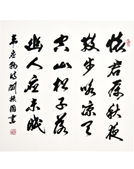 怀君属秋夜
散步咏凉天
空山松子落
幽人应未眠